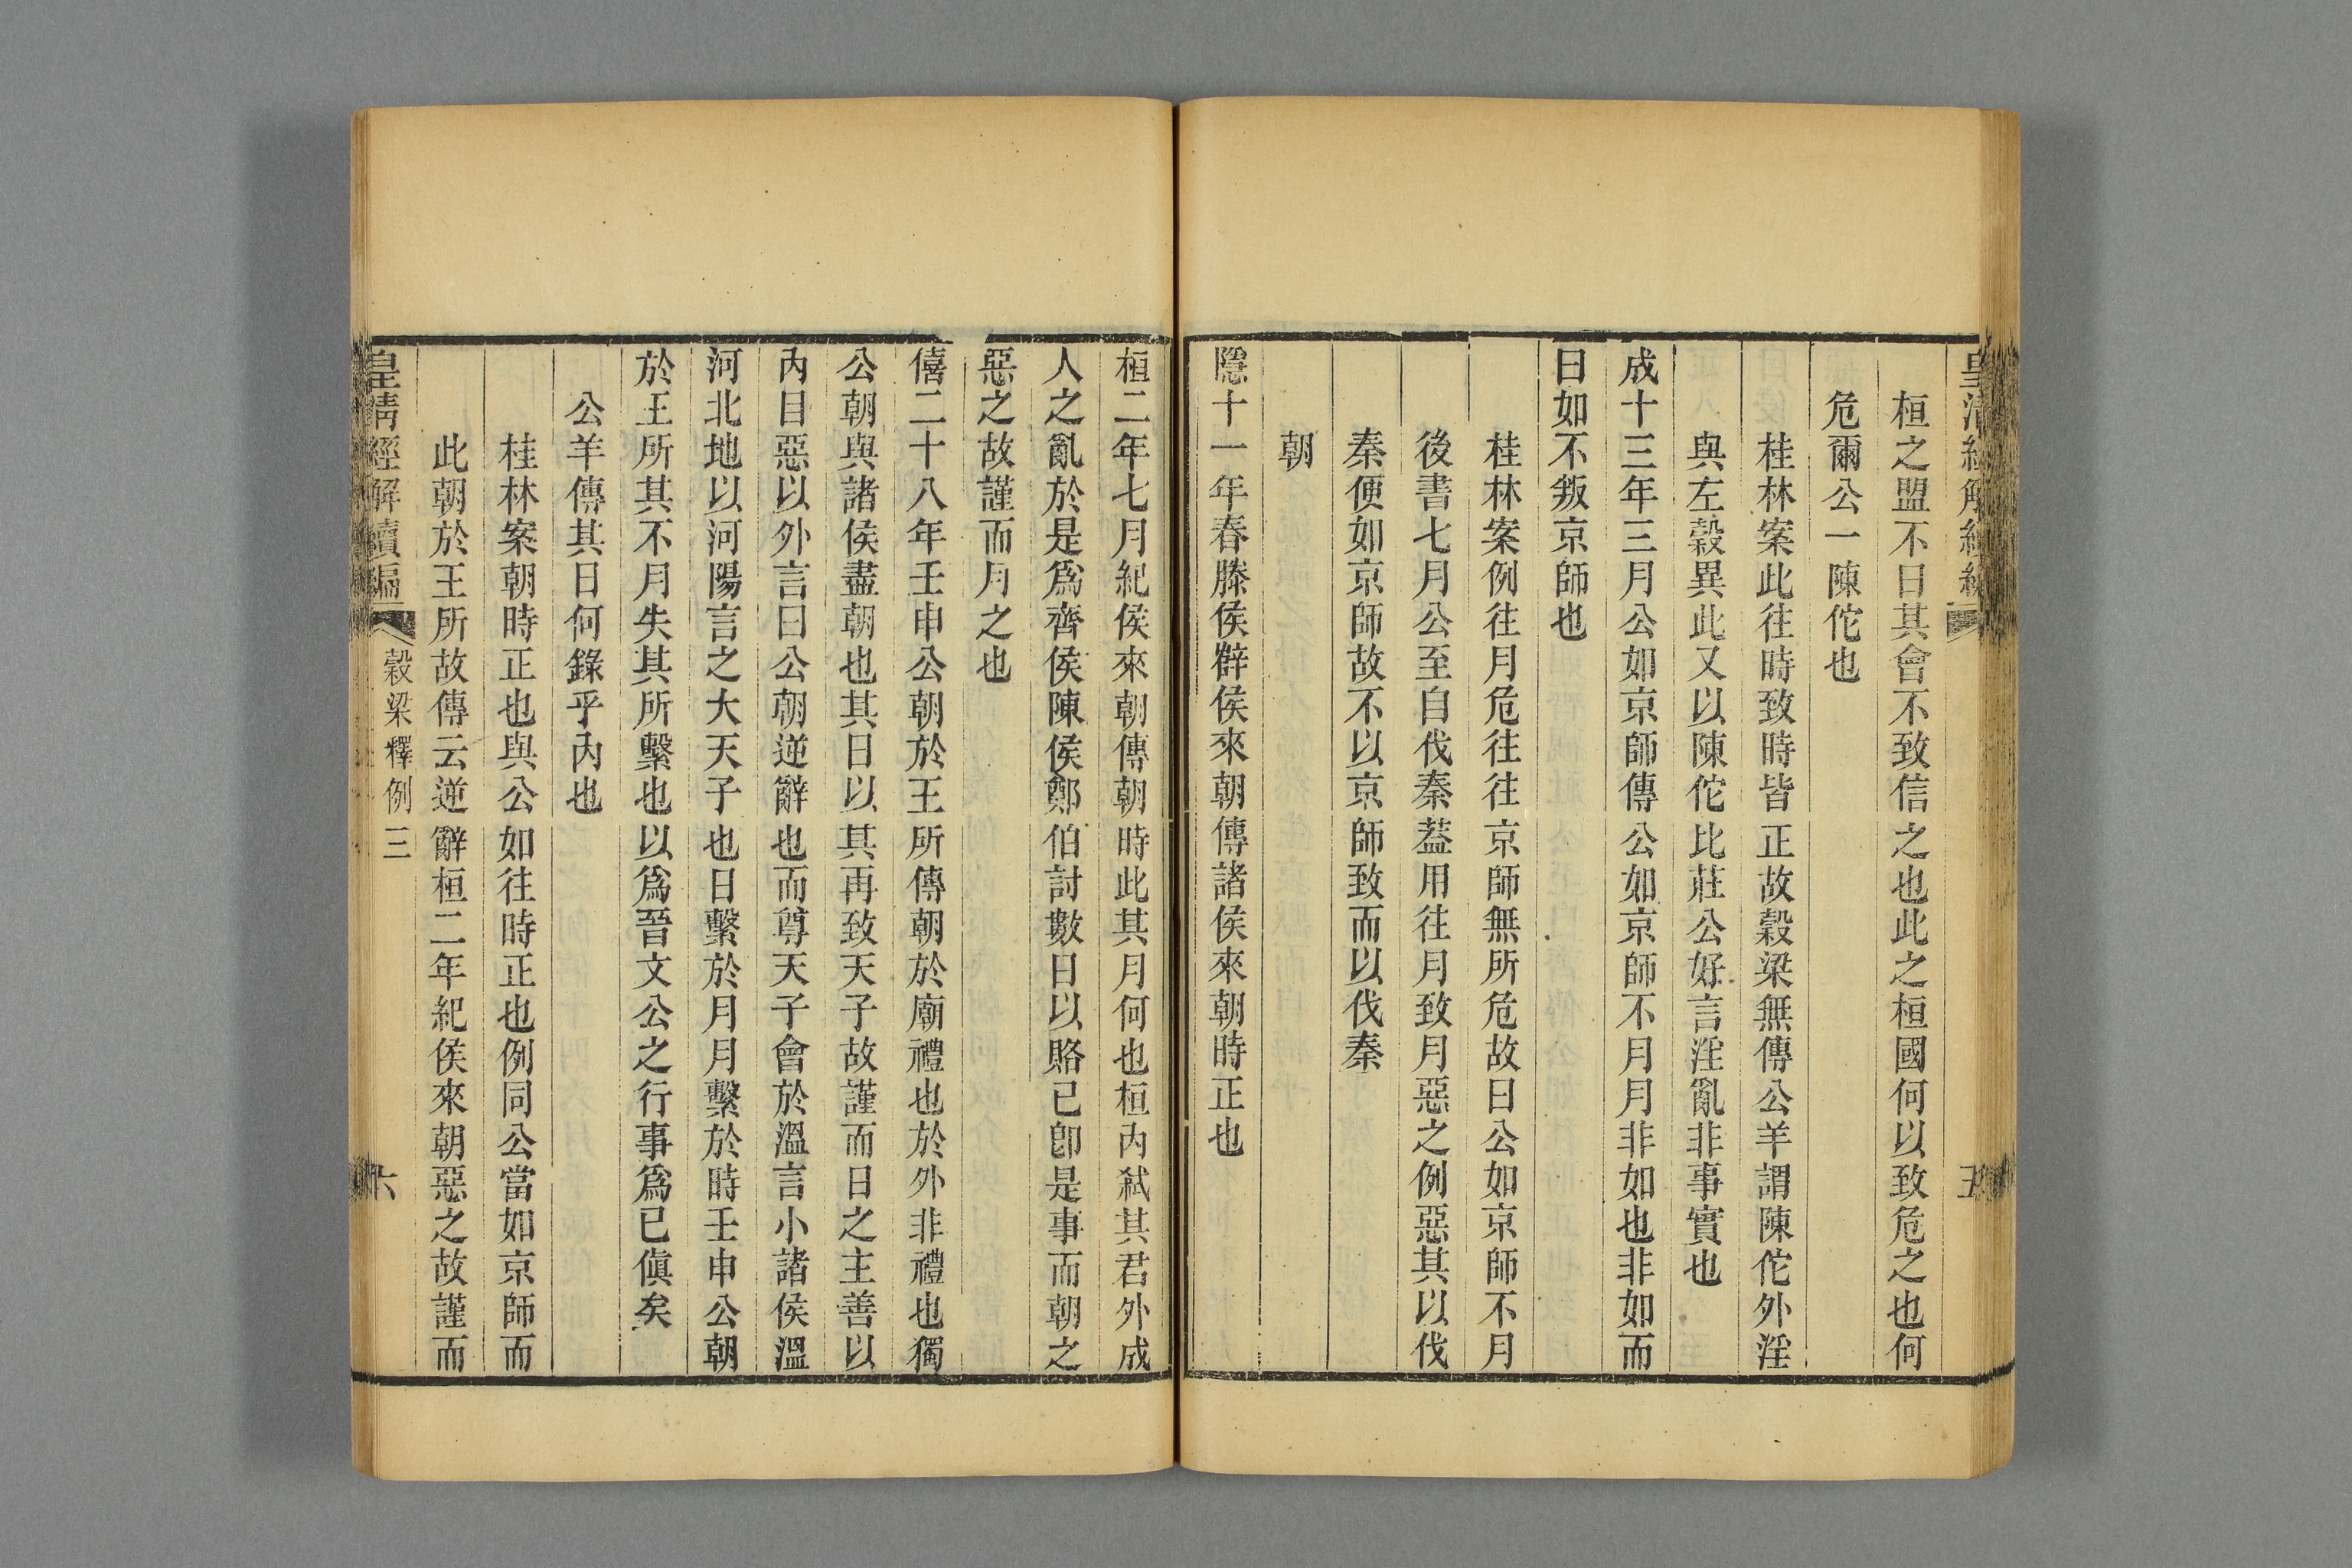 桓之盟不日其會不致信之也此之桓國何以致危之也何
危爾公一陳佗也
桂林案此往時致時皆正故穀梁無傳公羊謂陳佗外淫
與左穀異此又以陳佗比莊公好言淫亂非事實也
成十三年三月公如京師傳公如京師不月月非如也非如而
曰如不叛京師也
桂林案例往月危往往京師無所危故曰公如京師不月
後書七月公至自伐秦葢用往月致月惡之例惡其以伐
秦便如京師故不以京師致而以伐秦
朝
隱十一年春滕侯薛侯來朝傳諸侯來朝時正也
桓二年七月紀侯來朝傳朝時此其月何也桓內弑其君外成
人之亂於是爲齊侯陳侯鄭伯討數日以賂已卽是事而朝之
惡之故謹而月之也
僖二十八年壬申公朝於王所傳朝於廟禮也於外非禮也獨
公朝與諸侯盡朝也其日以其再致天子故謹而日之主善以
內目惡以外言曰公朝逆辭也而尊天子會於溫言小諸侯溫
河北地以河陽言之大天子也日繫於月月繫於時壬申公朝
於王所其不月失其所繫也以爲晉文公之行事爲已傎矣
公羊傳其日何錄乎內也
桂林案朝時正也與公如往時正也例同公當如京師而
此朝於王所故傳云逆辭桓二年紀侯來朝惡之故謹而
皇清經解續編
穀梁釋例三
六